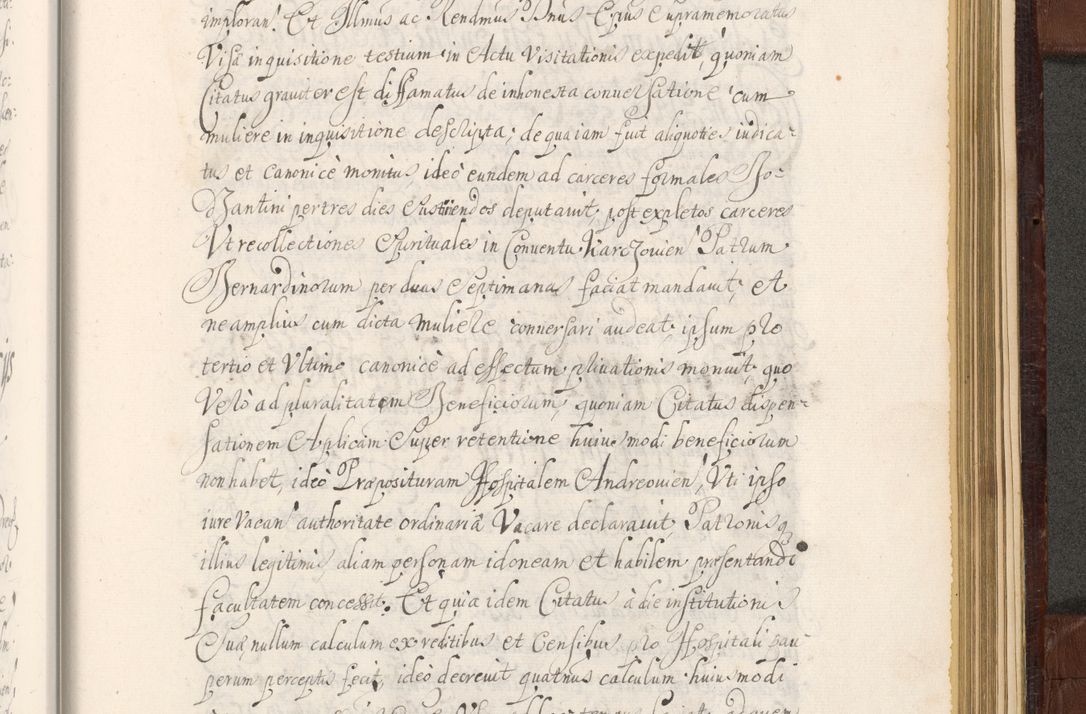 imploran. Et Illmus ac Rendmus Dnus Epus supramemoratus
Visa inquisitione testium in Actu Visitationis expedit, quoniam
Citatus graviter est diffamatus de inhonesta conversatione cum
muliere in inquisitione descripta, de qua iam fuit aliquoties iudica-
tus et canonicè monitus, ideò eundem ad carceres formales Bo-
dzantini per tres dies custiendos deputavit, post expletos carceres
Vt recollectiones Spirituales in Conventu Karczovien Patrum
Bernardinorum per duas Septimanas faciat mandavit, et
ne amplius cum dicta muliere conversari audeat, ipsum pro
tertio et Vltimo canonicè ad effectum privationis monuit, quo
Verò ad pluralitatem Beneficiorum, quoniam Citatus dispen-
sationem Aplicam Super retentione huiusmodi beneficiorum
non habet, ideò Præposituram Hospitalem Andreovien, Vti ipso
iure Vacan authoritate ordinaria Vacare declaravit, Patronisq
illius legitimis, aliam personam idoneam et habilem præsentandi
facultatem concessit. Et quia idem Citatus à die institutionis
Suæ nullum calculum ex reditibus et Censibus pro Hospitali pau
perum perceptis fecit, ideò decrevit quatnus calculum huiusmodi